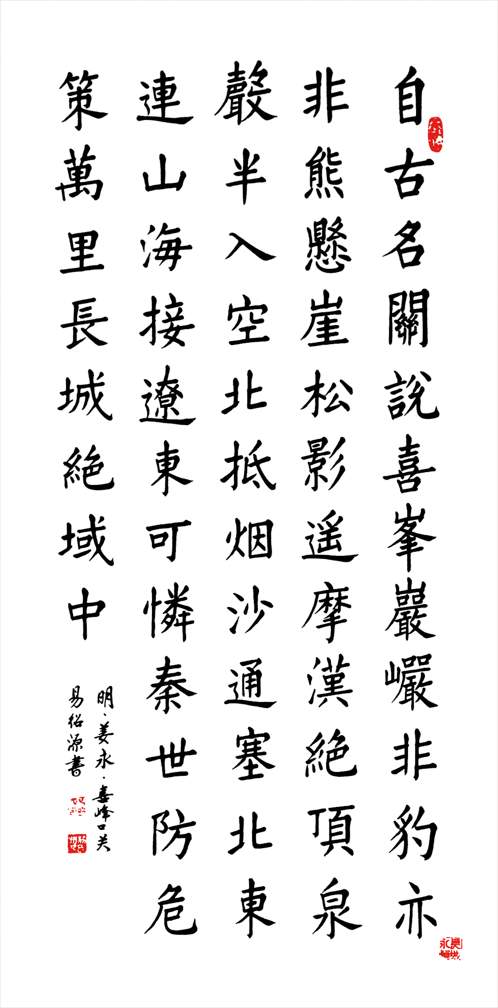 自古名關說喜峯巖巗非豹亦
非熊懸崖松影遥摩漢絶頂泉
聲半入空北抵烟沙通塞北東
連山海接遼東可憐秦世防危
策萬里長城絶域中
明·姜永·喜峰口关
易绍源書